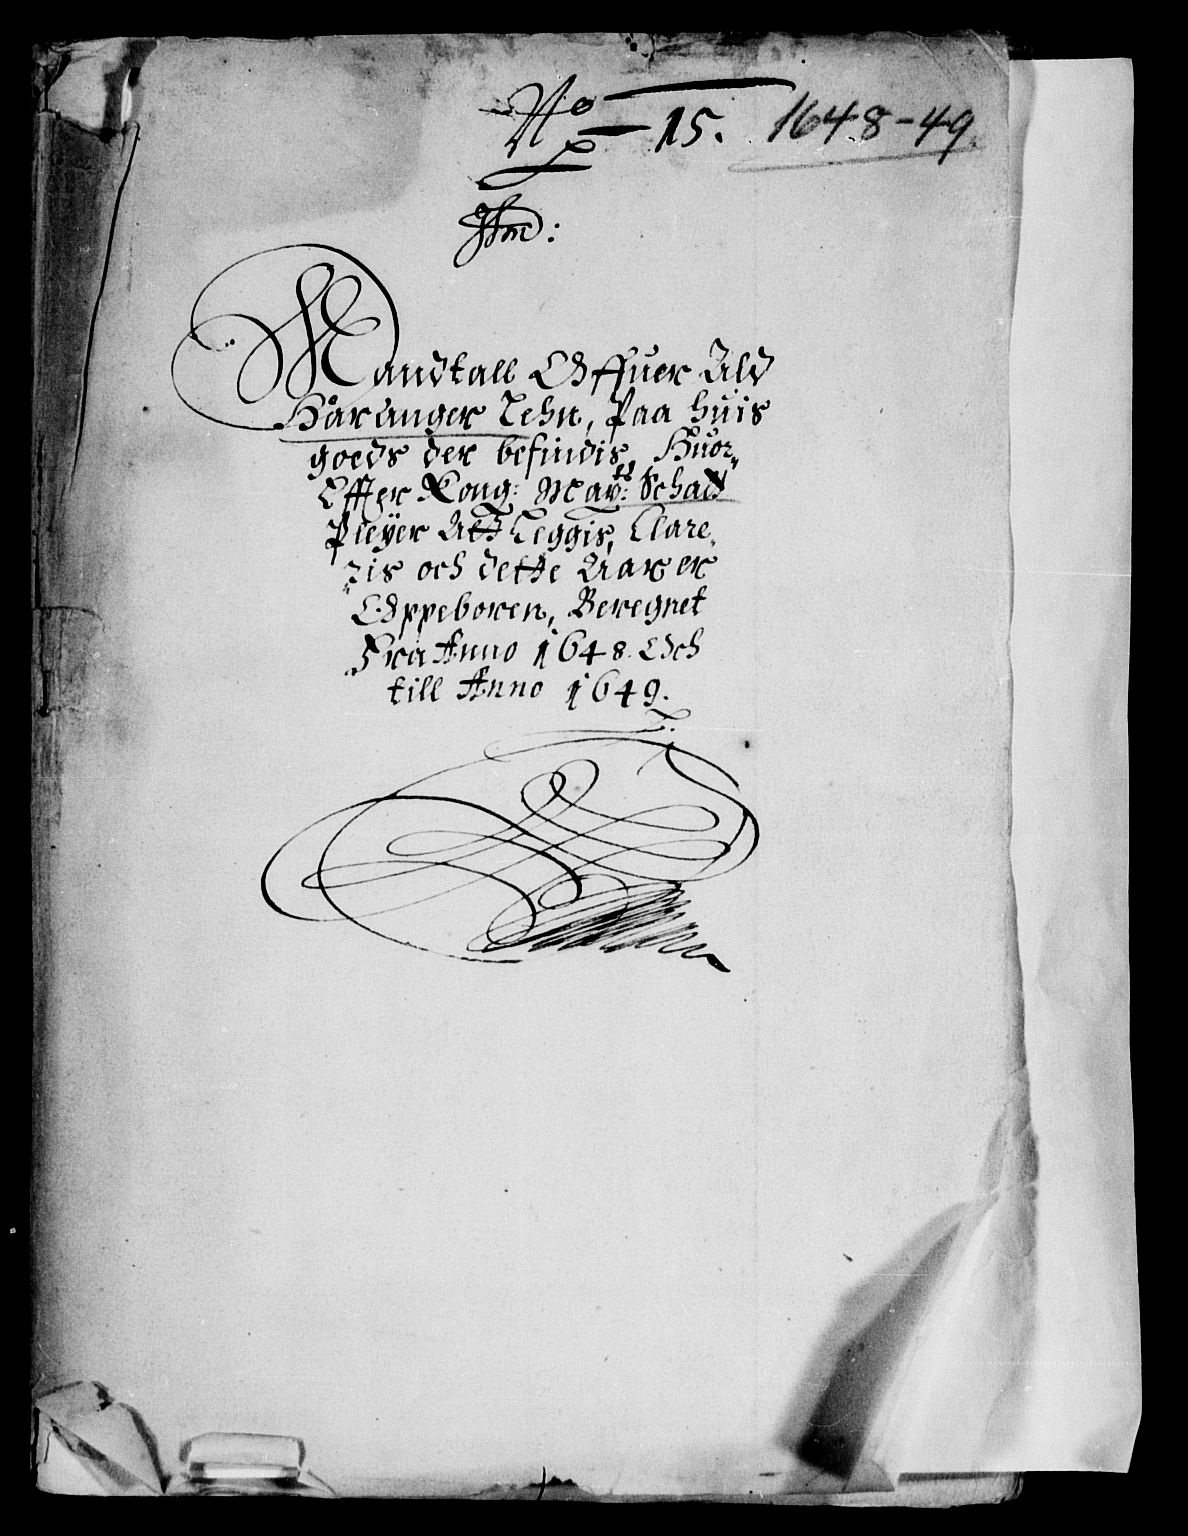 No 15. 1648-49
Mandtall Offuer Ald
Hardanger Lehn, Paa huis
goeds der befindis, Huor„
Effter Kong: May:tt Schatt
Pleÿer Att Leggis, Clare„
„ris och dette Aar er
Oppeboren, Beregnet
Fra Anno 1648. Och
till Anno 1649.